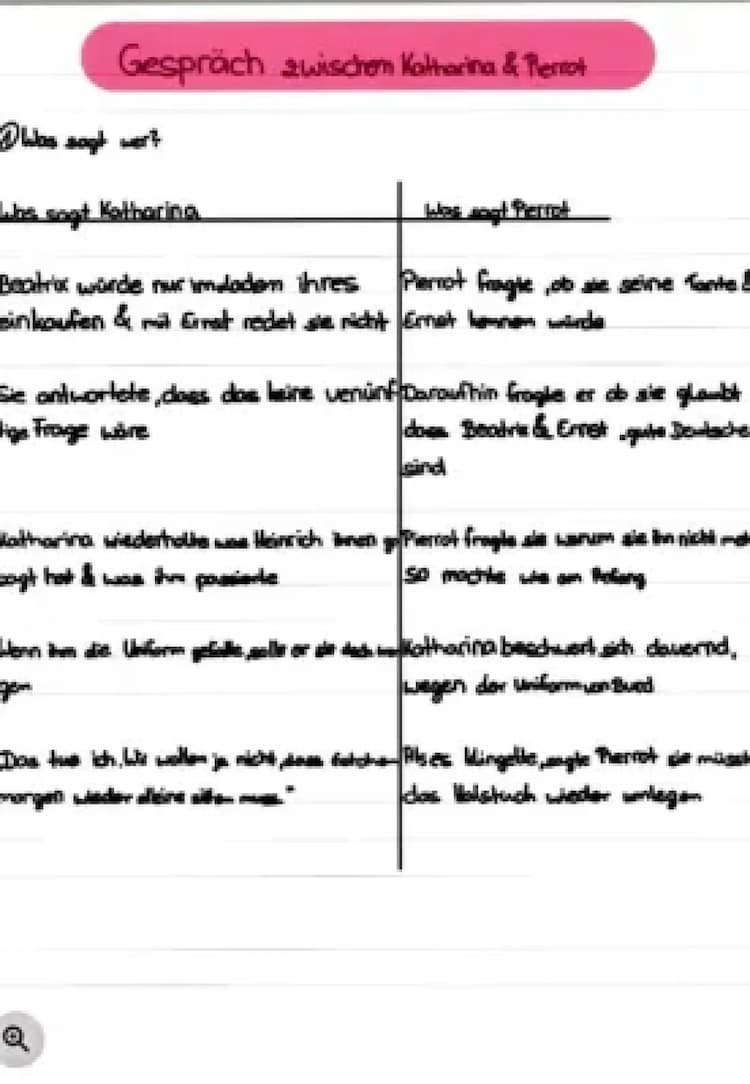 Gespräch zwischen Katharina & Pierrot
① Was sagt wer?
Was sagt Katharina
Was sagt Pierrot
Beatrix würde nur im Laden ihres
einkaufen & mit Ernst redet sie nicht
Pierrot fragte, ob sie seine Tante
Ernst kennen würde
Sie antwortete, dass das keine vernünf
tige Frage wäre
Daraufhin fragte er ob sie glaubt
dass Beatrix & Ernst gute Deutsche
sind
Katharina wiederholte was Heinrich ihnen
sagt hat & was ihm passierte
Pierrot fragte sie warum sie ihn nicht
so mochte wie am Anfang
Wenn ihm die Uniform gefalle, solle er sie doch
gen
Katharina beschwert sich dauernd,
wegen der Uniform von Bund
Das tue ich. Wir wollen ja nicht, dass
morgen wieder alleine sitzen muss."
Als es klingelte, sagte Pierrot sie müsse
das Halstuch wieder umlegen